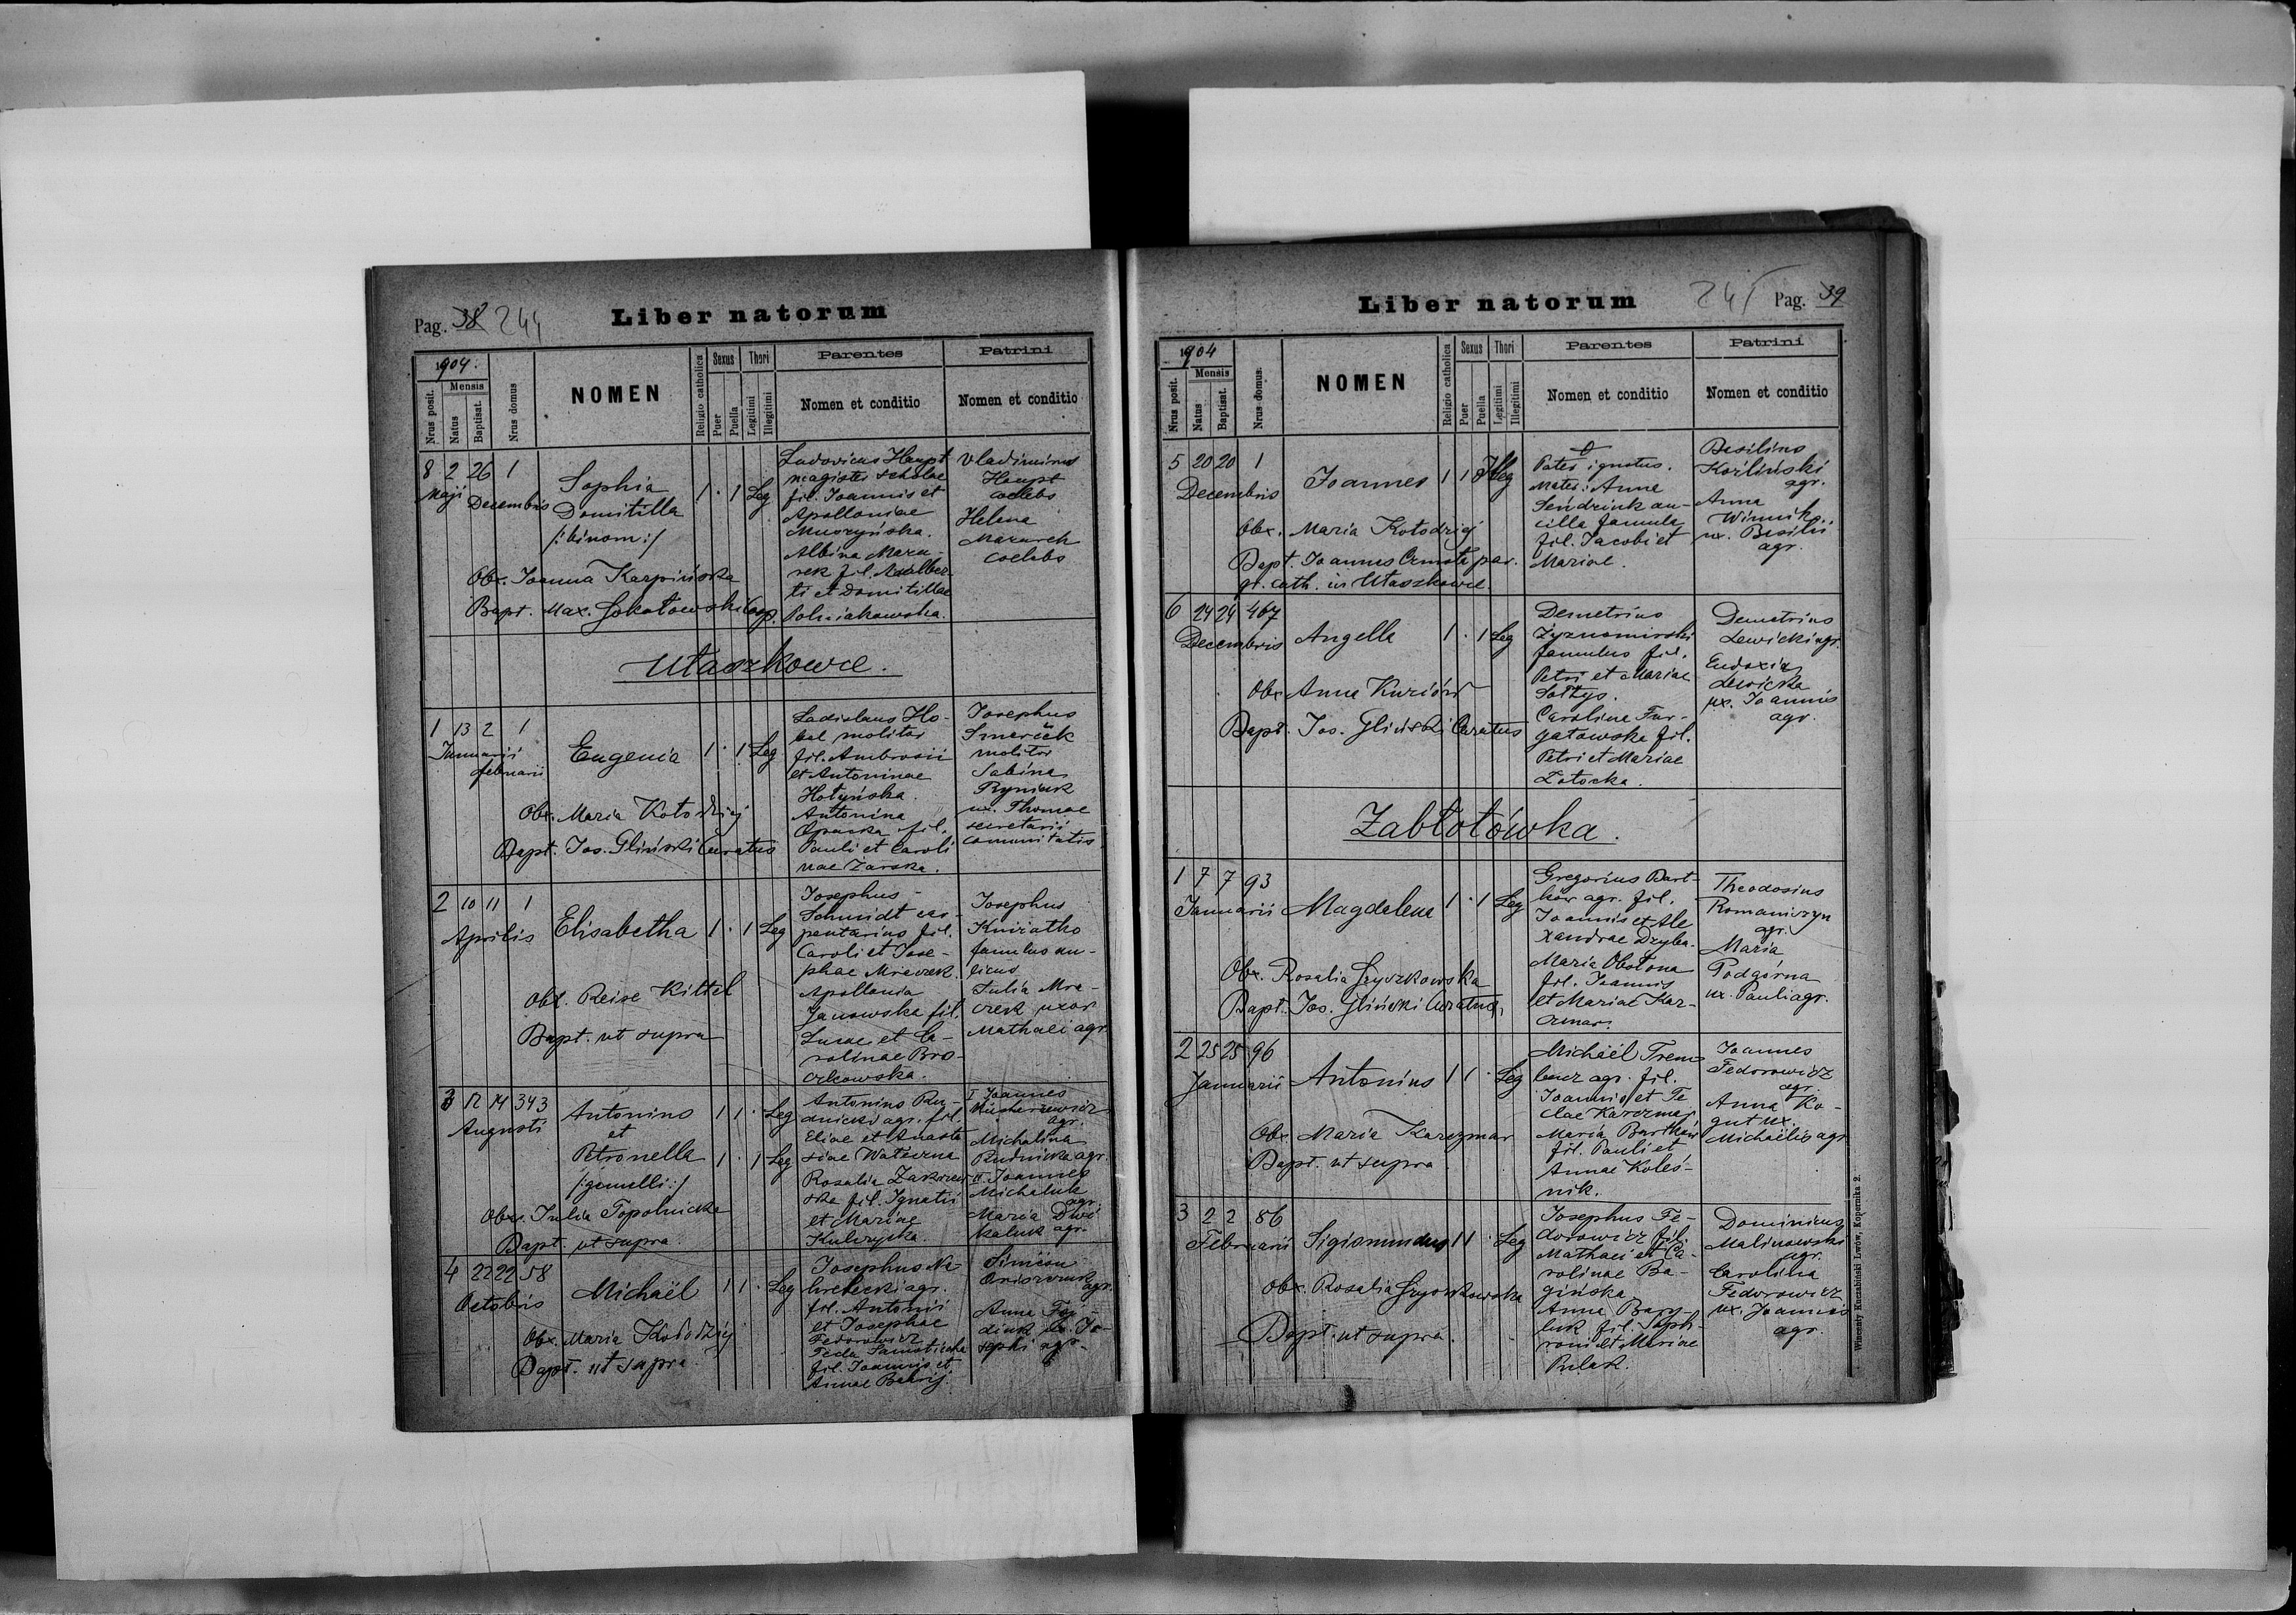 Pag. 38 244
Liber natorum
1904.
Nrus posit.
Mensis
Natus
Baptisat.
Nrus domus
NOMEN
Religio catholica
Sexus
Puer
Puella
Thori
Legitimi
Illegitimi
Parentes
Nomen et conditio
Patrini
Nomen et conditio
8 2 26 1
Maji
Decembris
Sophia
Domitilla
/:binom:/
1 · 1 Leg
Obx. Joanna Karpińska
Bapt. Max. Sokołowski Coop.
Ludovicus Haupt
magister scholae
fil. Joannis et
Apolloniae
Muszyńska.
Albina Mazu-
rek fil. Adalber-
ti et Domitillae
Polniakowska.
Vladimirus
Haupt
coelebs
Helena
Mazurek
coelebs
Ułaszkowce.
1 13 2 1
Januarii
februarii
Eugenia
1 · 1 Leg
Obx. Maria Kołodziej
Bapt. Jos. Gliński Curatus
Ladislaus Ho-
molitor
fil. Ambrosii
et Antoninae
Hołyńska.
Antonina
Opacka fil.
Pauli et Caroli
nae Zarska.
Josephus
Smerček
molitor
Sabina
Ryniak
ux. Thomae
secretarii
communitatis
2 10 11 1
Aprilis
Elisabetha
1 · 1 Leg
Obx. Reise Kittel
Bapt. ut supra
Josephus
Schmidt car-
pentarius fil.
Caroli et Jose-
phae Mraczek.
Apollonia
Janowska fil.
Lucae et Ca-
rolinae Bro-
czkowska.
Josephus
Kniżatko
famulus au-
licus
Julia Mra-
czek uxor
Mathaei agr.
3 12 14 343
Augusti
Antonius
et
Petronella
/:gemelli:/
1 1 · Leg
1 · 1 Leg
Obx. Julia Topolnicka
Bapt. ut supra.
Antonius Ru-
dnicki agr. fil.
Eliae et Anasta
siae
Rosalia
fil. Ignatii
et Mariae
Kulczycka.
I Joannes
agr.
Michalina
Rudnicka agr.
II Joannes
Michaluk
agr.
Maria
agr.
4 22 22 58
Octobris
Michaël
1 1 · Leg
Obx. Maria Kołodziej
Bapt. ut supra.
Josephus Na
hrebecki agr.
fil. Antonii
et Josephae
Fedorowicz
Tecla
fil. Joannis et
Annae
Simeon
Oniszczuk
agr.
Anna
ux. Jo-
sephi agr.
Liber natorum
241 Pag. 39
1904
Nrus posit.
Mensis
Natus
Baptisat.
Nrus domus.
NOMEN
Religio catholica
Sexus
Puer
Puella
Thori
Legitimi
Illegitimi
Parentes
Nomen et conditio
Patrini
Nomen et conditio
5 20 20 1
Decembris
Joannes
1 1 Illeg
Obx. Maria Kołodziej
Bapt. Joannes par.
gr. cath. in Ułaszkowce
Pater ignotus.
Mater: Anna
Sendziuk an-
cilla famula
fil. Jacobi et
Mariae.
Basilius
Koźliński
agr.
Anna
Winnik
ux. Basilii
agr.
6 24 24 467
Decembris
Angella
1 · 1 Leg
Obx Anna Kuziów
Bapt. Jos. Gliński Curatus
Demetrius
Żyznomirski
famulus fil.
Petri et Mariae
Sołtys.
Carolina Fur-
gatowska fil.
Petri et Mariae
Zatocka.
Demetrius
Lewicki agr.
Eudoxia
Lewicka
ux. Joannis
agr.
Zabłotówka.
1 7 7 93
Januarii
Magdalena
1 · 1 Leg
Obx. Rosalia Szyczkowska
Bapt. Jos. Gliński Curatus
Gregorius Bart-
ków agr. fil.
Joannis et Ale
xandrae Dzyba.
Maria Obstona
fil. Joannis
et Mariae Kar-
czmar.
Theodosius
Romaniszyn
agr.
Maria
Podgórna
ux. Pauli agr.
2 25 25 96
Januarii
Antonius
1 1 · Leg
Obx. Maria Karczmar
Bapt. ut supra.
Michaël Trem-
agr. fil.
Joannis et Te
clae Karczmar
Maria Bartków
fil. Pauli et
Annae Koleś-
nik.
Joannes
Fedorowicz
agr.
Anna Ko-
gut ux.
Michaëlis agr
3 2 2 86
Februarii
Sigismundus
1 1 · Leg
Obx. Rosalia Szyczkowska
Bapt. ut supra.
Josephus Fe-
dorowicz fil.
Mathaei et Ca-
rolinae Ba-
gińska
Anna Bary-
luk fil. Soph-
roni et Mariae
Pulak.
Dominicus
Malinowski
agr.
Carolina
Fedorowicz
ux. Joannis
agr.
Wincenty Kuczabiński Lwów, Kopernika 2.